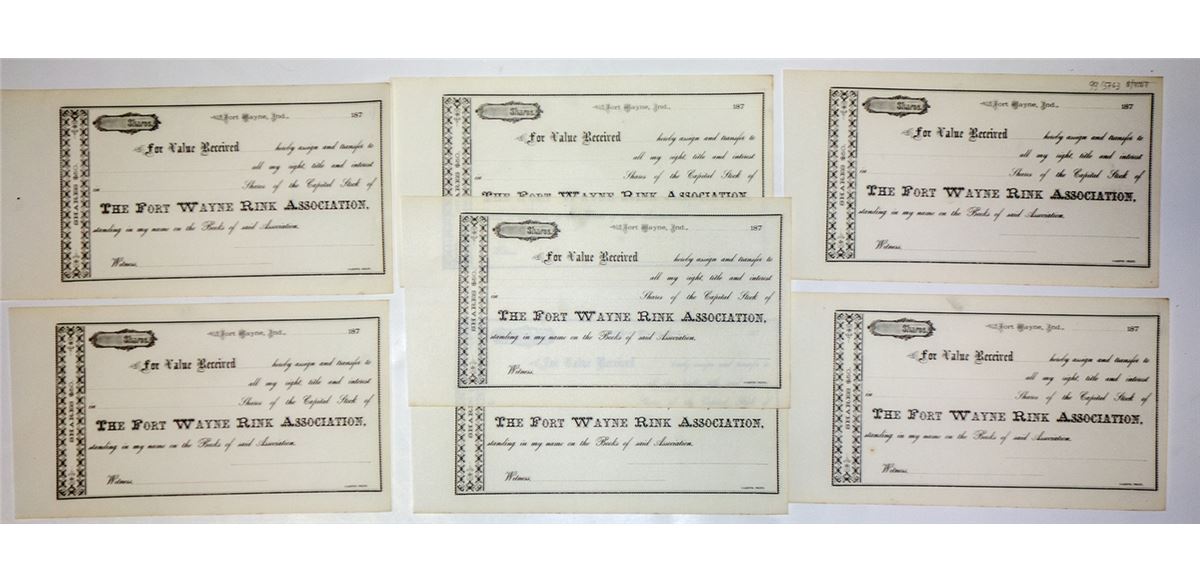 Shares. Fort Wayne, Ind., 187
For Value Received hereby assign and transfer to
all my right, title and interest
in Shares of the Capital Stock of
THE FORT WAYNE RINK ASSOCIATION,
standing in my name on the Books of said Association.
Witness,
SHARES $50.
Shares. Fort Wayne, Ind., 187
For Value Received hereby assign and transfer to
all my right, title and interest
Shares of the Capital Stock of
THE FORT WAYNE RINK ASSOCIATION
Shares. Fort Wayne, Ind., 187
For Value Received hereby assign and transfer to
all my right, title and interest
in Shares of the Capital Stock of
THE FORT WAYNE RINK ASSOCIATION,
standing in my name on the Books of said Association.
Witness,
SHARES $50.
Shares. Fort Wayne, Ind., 187
For Value Received hereby assign and transfer to
all my right, title and interest
in Shares of the Capital Stock of
THE FORT WAYNE RINK ASSOCIATION,
standing in my name on the Books of said Association.
Witness,
SHARES $50.
Shares. Fort Wayne, Ind., 187
For Value Received hereby assign and transfer to
all my right, title and interest
in Shares of the Capital Stock of
THE FORT WAYNE RINK ASSOCIATION,
standing in my name on the Books of said Association.
Witness,
SHARES $50.
THE FORT WAYNE RINK ASSOCIATION,
standing in my name on the Books of said Association.
Witness,
Shares. Fort Wayne, Ind., 187
For Value Received hereby assign and transfer to
all my right, title and interest
in Shares of the Capital Stock of
THE FORT WAYNE RINK ASSOCIATION,
standing in my name on the Books of said Association.
Witness,
SHARES $50.